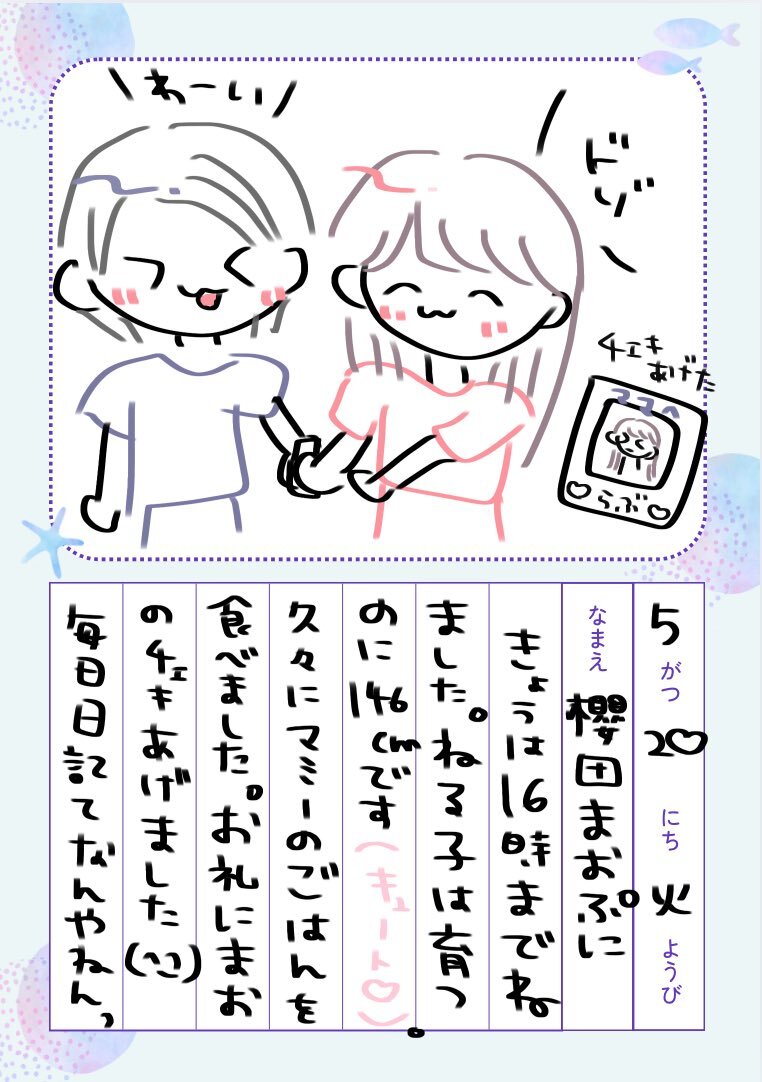 わーい
ドゾ
チェキ
あげた
ママへ
らぶ
5がつ20にち火ようび
なまえ 櫻田まおぷに
きょうは16時までね
ました。ねる子は育つ
のに146cmです(キュート♡)。
久々にマミーのごはんを
食べました。お礼にまお
のチェキあげました(^^)
毎日日記てなんやねん。